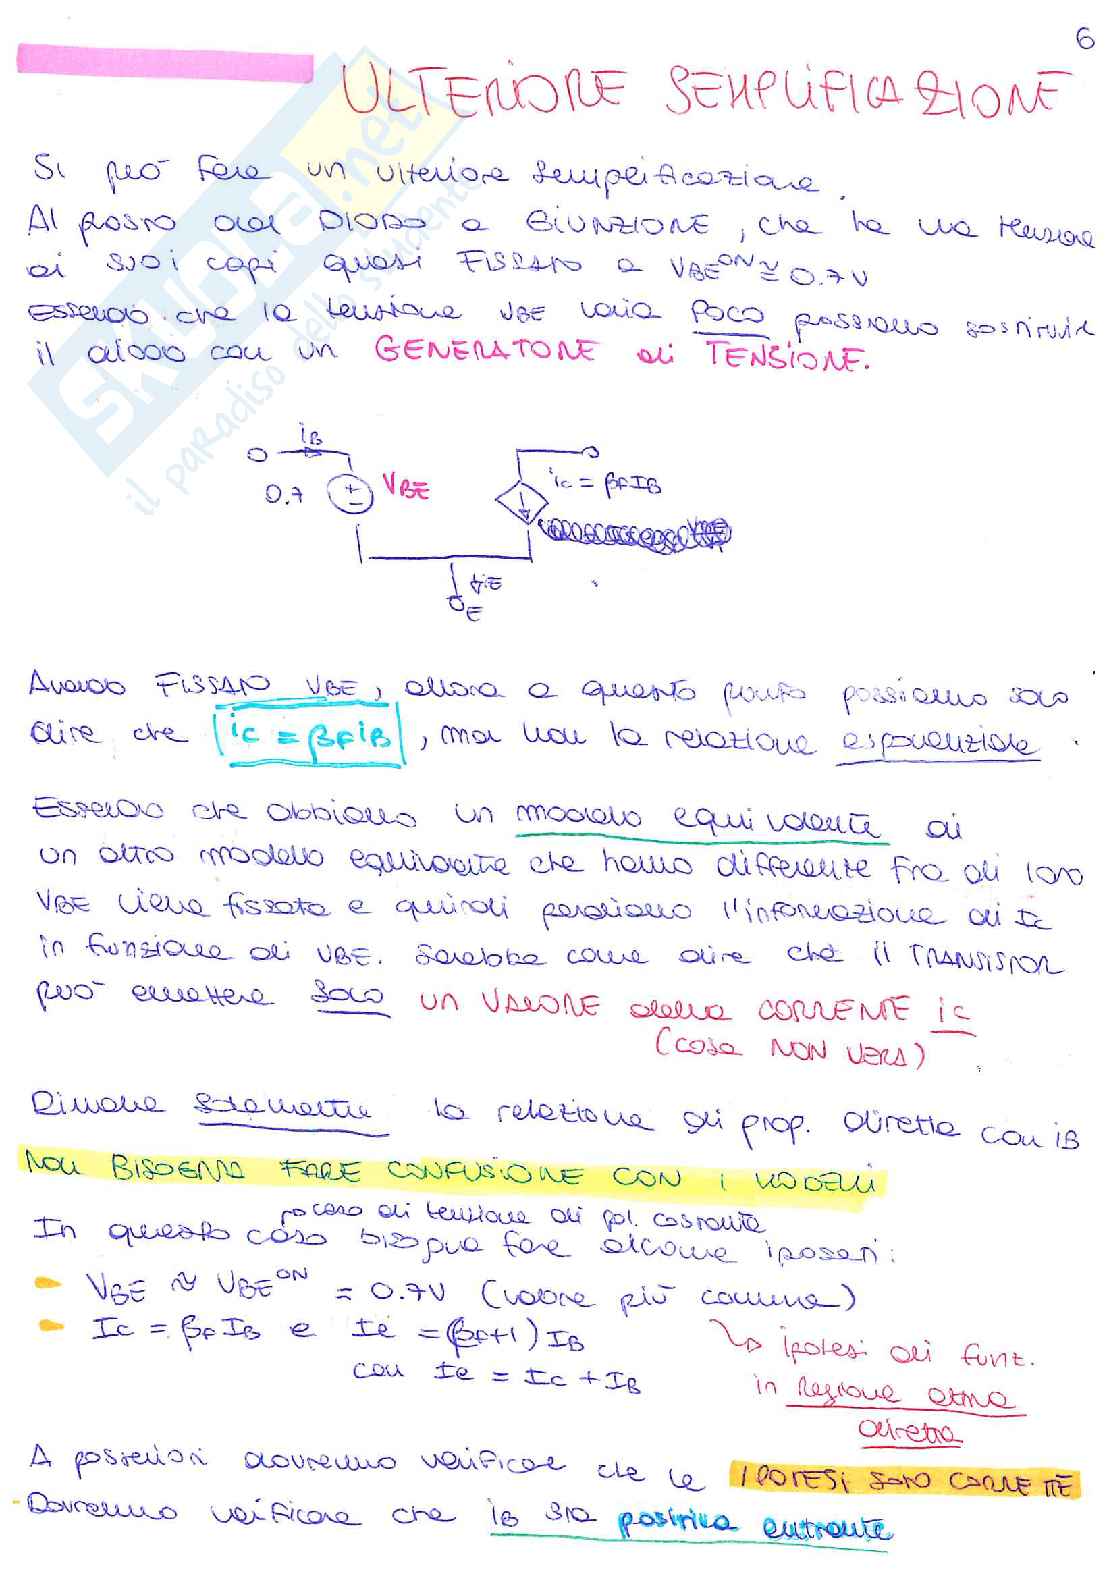 6
ULTERIORE SEMPLIFICAZIONE
Si può fare un ulteriore semplificazione.
Al posto del DIODO a GIUNZIONE, che ha una tensione
ai suoi capi quasi FISSATO a VBE^ON ≅ 0.7V
Essendo che la tensione VBE varia POCO possiamo sostituire
il diodo con un GENERATORE di TENSIONE.
iB
0.7 VBE
ic = βF IB
iE
E
Avendo FISSATO VBE, allora a questo punto possiamo solo
dire che ic = βF iB, ma non la relazione esponenziale.
Essendo che abbiamo un modello equivalente di
un altro modello equivalente che hanno differenze fra di loro
VBE viene fissata e quindi perdiamo l'informazione di Ic
in funzione di VBE. Sarebbe come dire che il TRANSISTOR
può emettere SOLO UN VALORE della CORRENTE ic
(cosa NON VERA)
Rimane solamente la relazione di prop. diretta con iB
NON BISOGNA FARE CONFUSIONE CON I MODELLI
caso di tensione di pol. costante
In questo caso bisogna fare alcune ipotesi:
VBE ≈ VBE^ON = 0.7V (valore più comune)
Ic = βF IB e Ie = (βF+1) IB
con Ie = Ic + IB
↳ ipotesi di funz.
in Regione attiva
diretta
A posteriori dovremo verificare che le IPOTESI SONO CORRETTE
- Dovremo verificare che iB sia positiva entrante
skuola.net
il paradiso dello studente